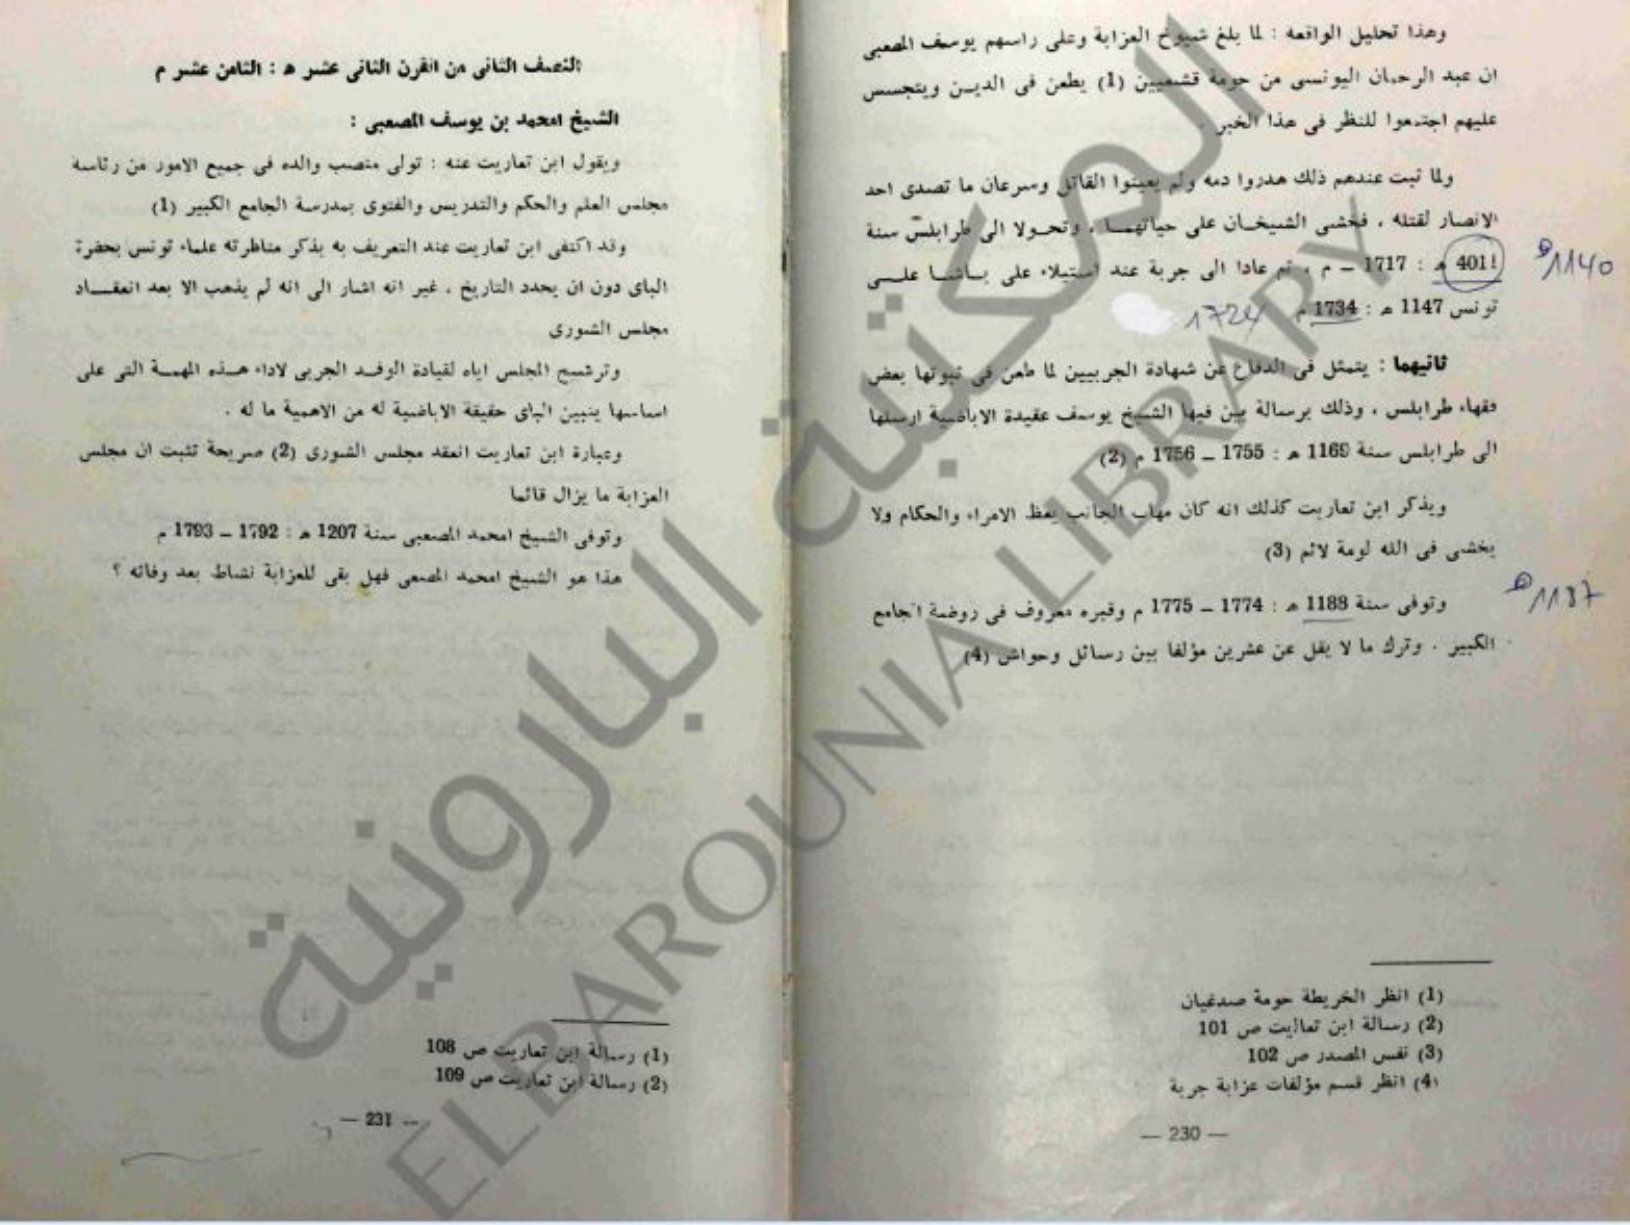 وهذا تحليل الواقعه : لما بلغ شيوخ العزابة وعلى راسهم يوسف المصعبى
ان عبد الرحمان اليونسى من حومة قشعيين (1) يطعن فى الديـن ويتجسس
عليهم اجتمعوا للنظر فى هذا الخبر .
ولما ثبت عندهم ذلك هدروا دمه ولم يعينوا القاتل وسرعان ما تصدى احد
الانصار لقتله ، فخشى الشيخـان على حياتهمـا ، وتحـولا الى طرابلس سنة
401! هـ : 1717 ـ م ، ثم عادا الى جربة عند استيلاء على بـاشـا علـى
1140 هـ
تونس 1147 هـ : 1734 م
172
ثانيهما : يتمثل فى الدفاع عن شهادة الجربيين لما طعن فى ثبوتها بعض
فقهاء طرابلس ، وذلك برسالة بين فيها الشيخ يوسف عقيدة الاباضية ارسلها
الى طرابلس سنة 1169 هـ : 1755 ـ 1756 م (2)
ويذكر ابن تعاريت كذلك انه كان مهاب الجانب يعظ الامراء والحكام ولا
يخشى فى الله لومة لائم (3)
وتوفى سنة 1188 هـ : 1774 ـ 1775 م وقبره معروف فى روضة الجامع
1187 هـ
الكبير . وترك ما لا يقل عن عشرين مؤلفا بين رسائل وحواش (4)
(1) انظر الخريطة حومة صدغيان
(2) رسالة ابن تعاريت ص 101
(3) نفس المصدر ص 102
(4) انظر قسم مؤلفات عزابة جربة
— 230 —
النصف الثانى من القرن الثانى عشر هـ : الثامن عشر م
الشيخ امحمد بن يوسف المصعبى :
ويقول ابن تعاريت عنه : تولى منصب والده فى جميع الامور من رئاسة
مجلس العلم والحكم والتدريس والفتوى بمدرسة الجامع الكبير (1)
وقد اكتفى ابن تعاريت عند التعريف به بذكر مناظرته علماء تونس بحضرة
الباى دون ان يحدد التاريخ ، غير انه اشار الى انه لم يذهب الا بعد انعقـاد
مجلس الشورى
وترشيح المجلس اياه لقيادة الوفـد الجربى لاداء هـذه المهمـة التى على
اساسها يتبين الباى حقيقة الاباضية له من الاهمية ما له .
وعبارة ابن تعاريت انعقد مجلس الشورى (2) صريحة تثبت ان مجلس
العزابة ما يزال قائما
وتوفى الشيخ امحمد المصعبى سنة 1207 هـ : 1792 ـ 1793 م
هذا هو الشيخ امحمد المصعبى فهل بقى للعزابة نشاط بعد وفاته ؟
(1) رسالة ابن تعاريت ص 108
(2) رسالة ابن تعاريت ص 109
— 231 —
المكتبة البارونية
ELBAROUNIA LIBRARY